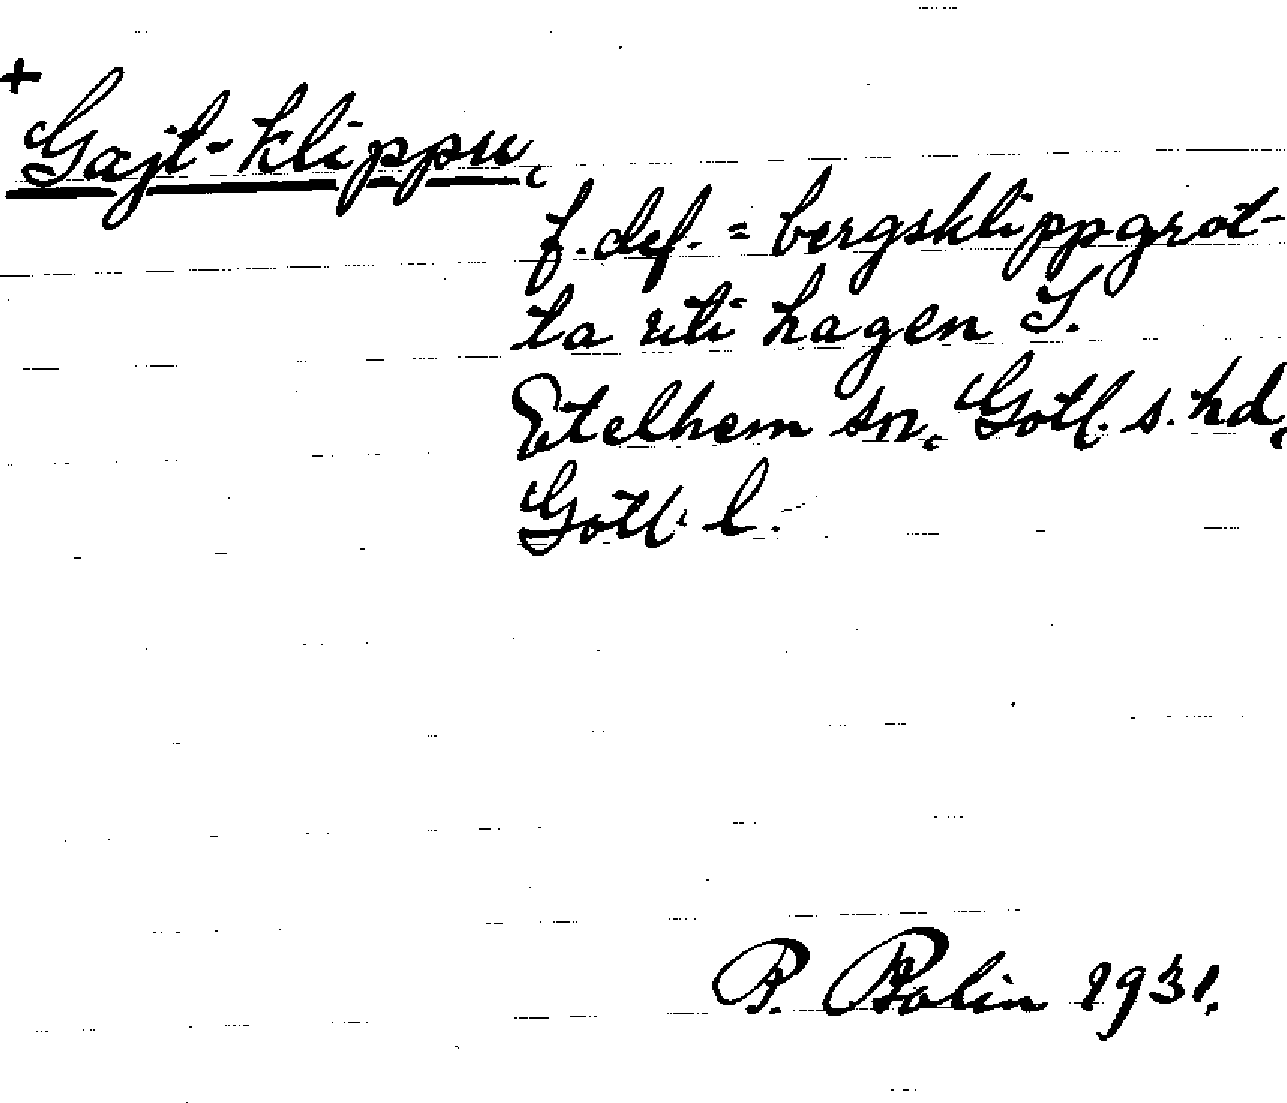 +
Gajt-klippu,
f. def. = bergsklippgrot-
ta uti hagen I.
Etelhem sn, Gotl. s. hd,
Gotl. l.
P. Bolin 1931.